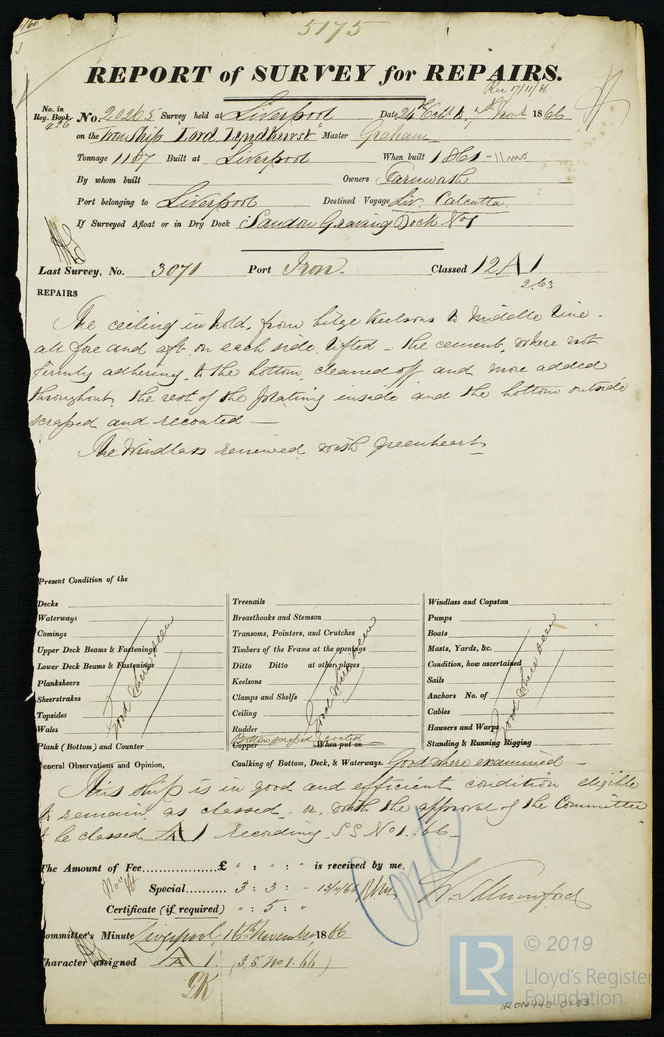 5175
REPORT of SURVEY for REPAIRS.
Rec 17/11/66
No. in Reg. Book 426 No. 20265 Survey held at Liverpool Date 24th Octr & 7th Novr 1866
on the Iron Ship Lord Lyndhurst Master Graham
Tonnage 1167 Built at Liverpool When built 1861 - 11 mo
By whom built Owners Farnworth
Port belonging to Liverpool Destined Voyage Liv. Calcutta
If Surveyed Afloat or in Dry Dock Sandon Graving Dock No 1
Last Survey, No. 3071 Port Iron. Classed 12 A 1
2.63
REPAIRS
The ceiling in hold, from bilge keelsons to middle line -
all fore and aft on each side lifted - the cement, where not
firmly adhering to the bottom cleaned off and more added
throughout, the rest of the plating inside and the bottom outside
scraped and recoated -
The Windlass renewed with greenheart
Present Condition of the
Decks
Waterways
Comings
Upper Deck Beams & Fastenings
Lower Deck Beams & Fastenings
Planksheers
Sheerstrakes
Topsides
Wales
Plank (Bottom) and Counter
Good where seen
Treenails
Breasthooks and Stemson
Transoms, Pointers, and Crutches
Timbers of the Frame at the openings
Ditto Ditto at other places
Keelsons
Clamps and Shelfs
Ceiling
Rudder
Bottom scraped & coated
Copper When put on
Good where seen
Windlass and Capstan
Pumps
Boats
Masts, Yards, &c.
Condition, how ascertained
Sails
Anchors No. of
Cables
Hawsers and Warps
Standing & Running Rigging
Good where seen
General Observations and Opinion, Caulking of Bottom, Deck, & Waterways. Good where examined -
This ship is in good and efficient condition eligible
to remain as classed, or, with the approval of the Committee
to be classed A 1 Recording S.S. No 1. 66 -
The Amount of Fee £ " : " : " is received by me,
Special 3 : 3 : " 13/11/66
Certificate (if required) " : 5 : "
Cont
Committee's Minute Liverpool, 16th November, 1866
Character assigned A 1 (S.S. No 1-66)
GK
LR © 2019
Lloyd's Register
Foundation
IRON440 0183